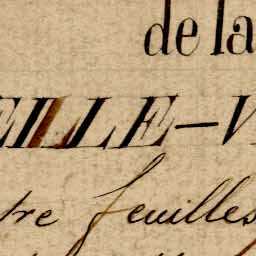 de la
EILLE-V
tre feuilles